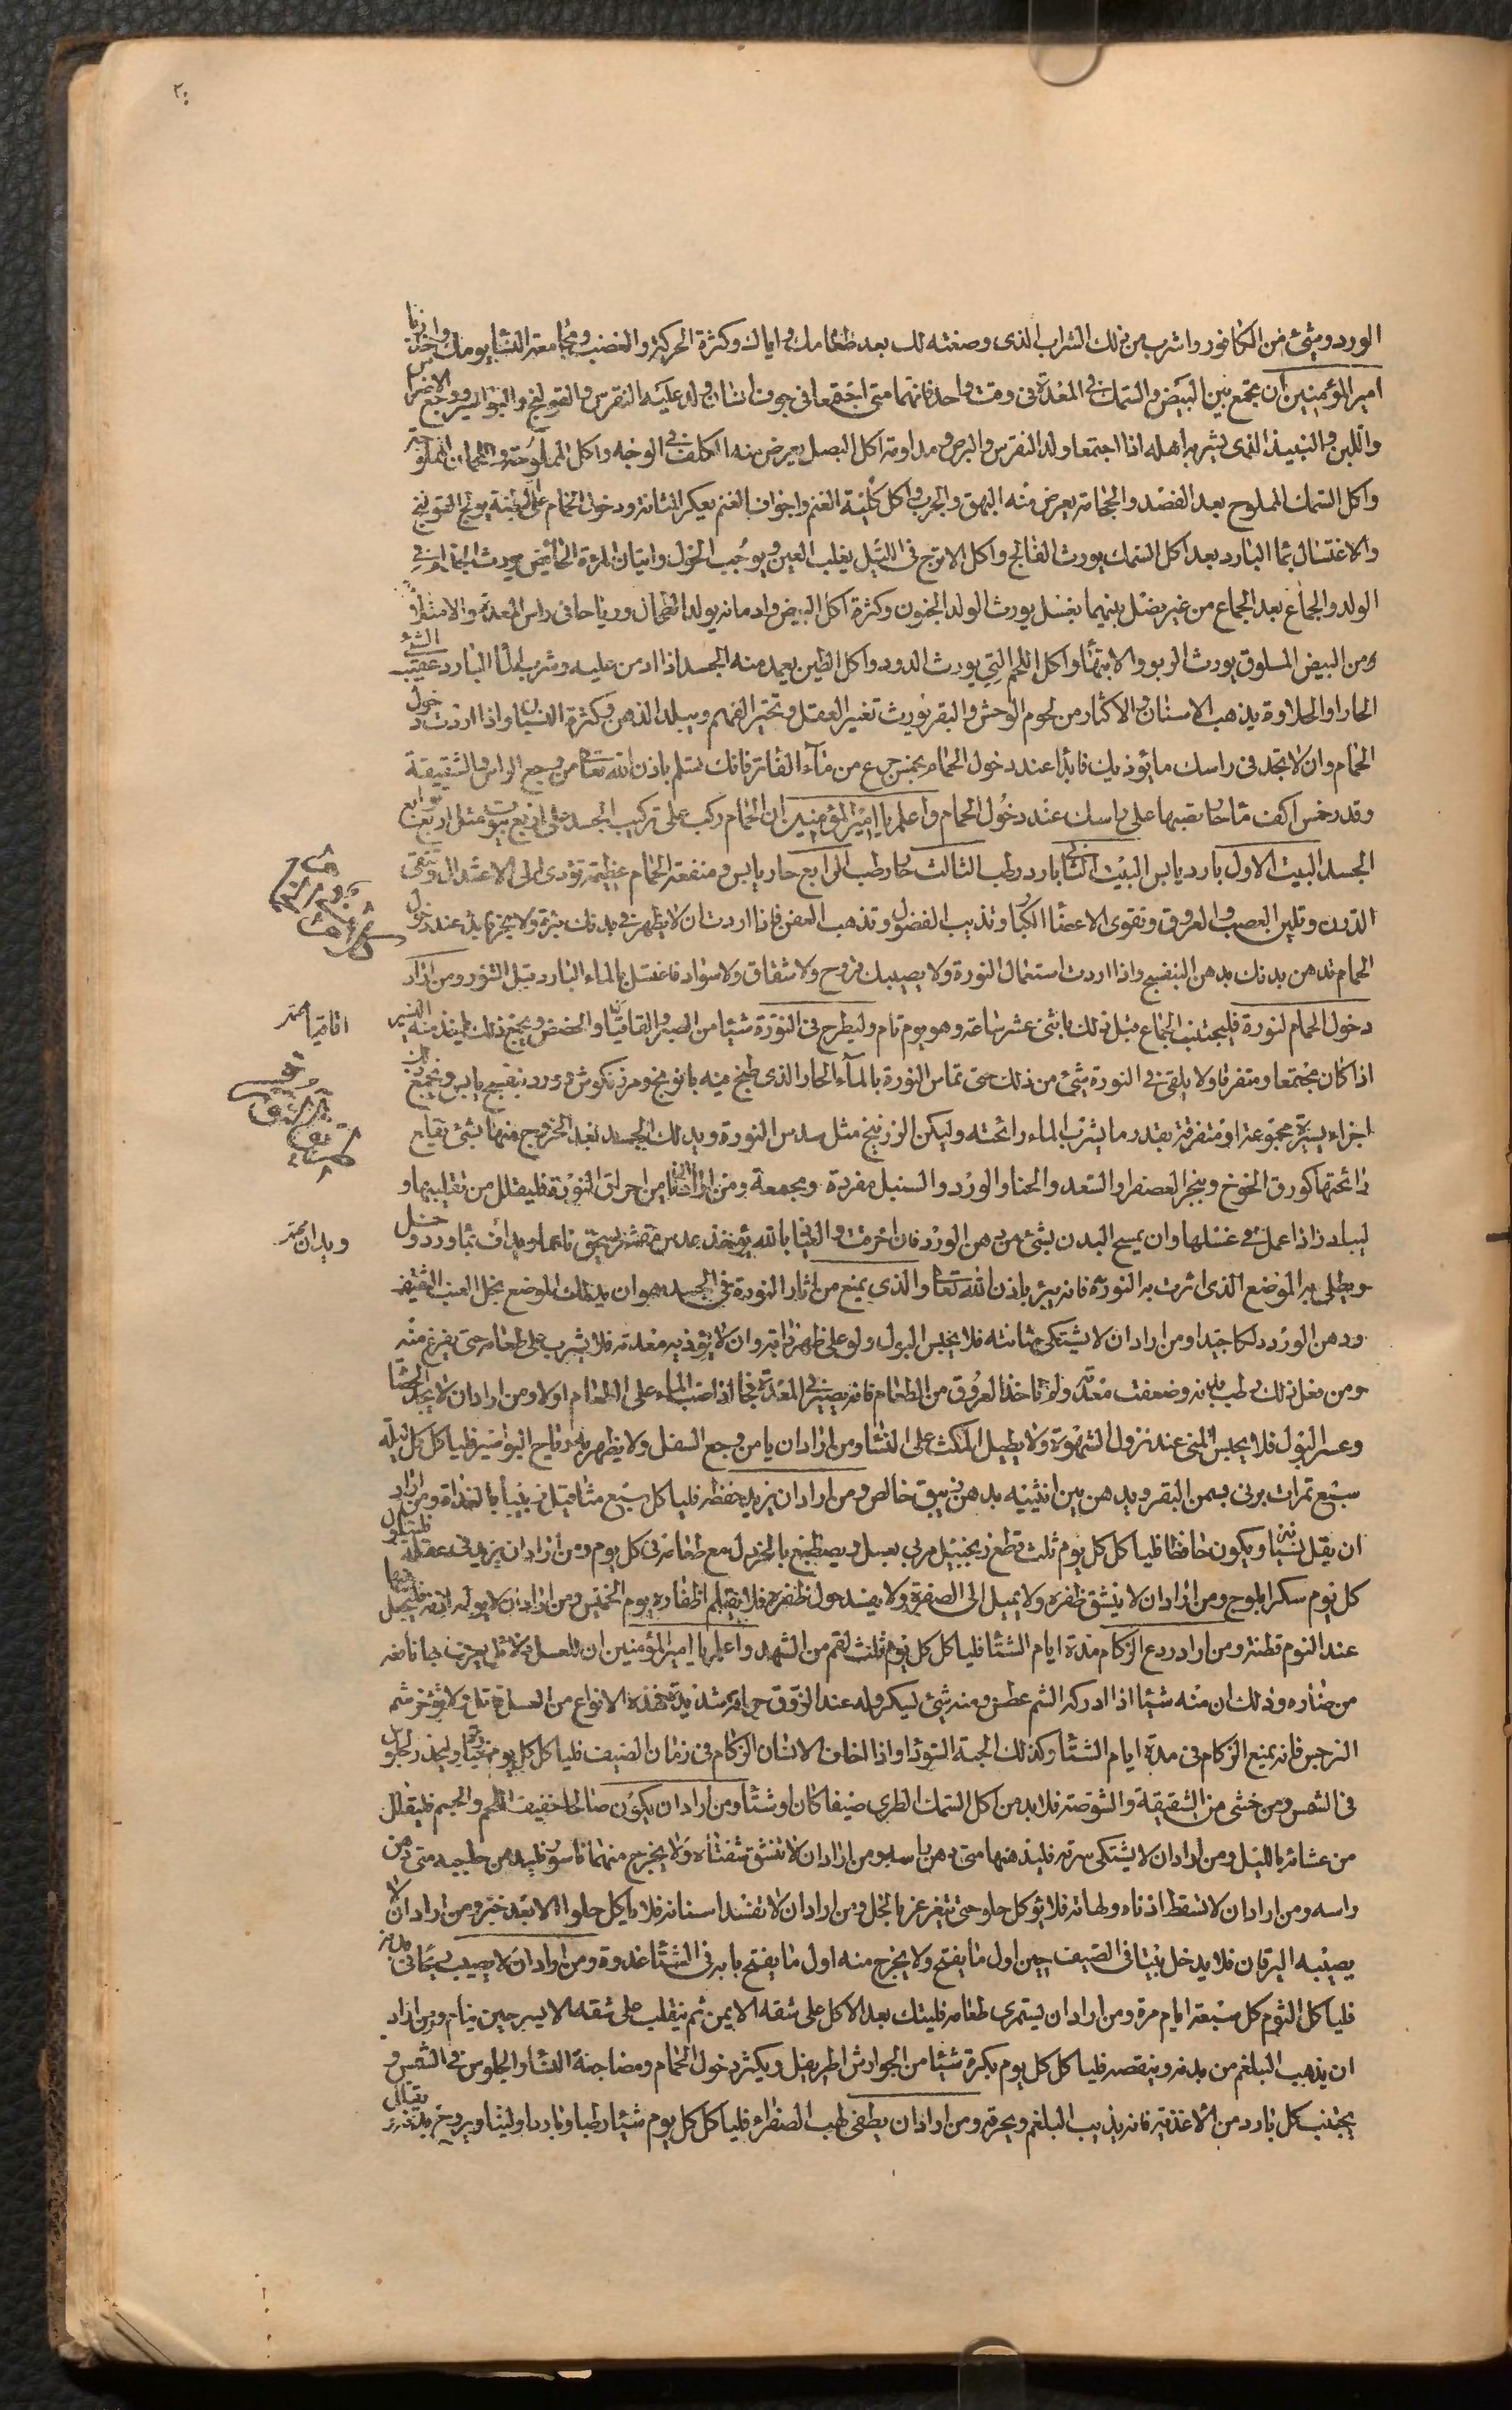 الورد وشئ من الكافور واشرب من ذلك الشراب الذى وصفته لك بعد طعامك واياك وكثرة الحركة والغضب ومجامعة النسا يومك واحذر يا
امير المؤمنين ان تجمع بين البيض والسمك فى المعدة فى وقت واحد فانهما متى اجتمعا فى جوف انسان ولد عليه النقرس والقولنج والبواسير ووجع الاضراس
واللبن والنبيذ الذى يشربه اهله اذا اجتمعا ولد النقرس والبرص ومداومة اكل البصل يعرض منه الكلف فى الوجه واكل الملوحة واللحمان المملوحة
واكل السمك المملوح بعد الفصد والحجامة يعرض منه البهق والجرب واكل كلية الغنم واجواف الغنم يعكر المثانة ودخول الحمام على البطنة يولد القولنج
والاغتسال بما البارد بعد اكل السمك يورث الفالج واكل الاترج فى الليل يقلب العين ويوجب الحول واتيان المرءة الحائض يورث الجذام فى
الولد والجماع بعد الجماع من غير فصل بينهما بغسل يورث الولد الجنون وكثرة اكل البيض وادمانه يولد الطحال ورياحا فى راس المعدة والامتلاء
ومن البيض المسلوق يورث الربو والابتها واكل اللحم التي يورث الدود واكل الطين يعمد منه الجسد اذا ادمن عليه وشرب الما البارد عقيب الشئ
الحار او الحلاوة يذهب الاسنان والاكثار من لحوم الوحش والبقر يورث تغير العقل وتحير الفهم ويبلد الذهن وكثرة النسيان واذا اردت دخول
الحمام وان لا تجد فى راسك ما يؤذيك فابدا عند دخول الحمام بخمس جرع من مآء الفاتر فانك تسلم باذن الله تعا من وجع الراس والشقيقة
وقدر خمس اكف ما حار تصبها على راسك عند دخول الحمام واعلم يا امير المؤمنين ان الحمام ركب على تركيب الجسد على اربع بيوت مثل اربع طبايع
الجسد البيت الاول بارد يابس البيت الثانى بارد رطب الثالث حار رطب الرابع حار يابس ومنفعة الحمام عظيمة تؤدى الى الاعتدال وتنقى
الدرن وتلين العصب والعروق وتقوى الاعضا الكبار وتذيب الفضول وتذهب العفن فاذا اردت ان لا يظهر فى بدنك بثرة ولا غيرها فابدء عند دخول
الحمام تدهن بدنك بدهن البنفسج واذا اردت استعمال النورة ولا يصيبك قروح ولا شقاق ولا سواد فاغتسل بالماء البارد قبل التنور ومن اراد
دخول الحمام لنورة فليجتنب الجماع قبل ذلك باثنى عشر ساعة وهو يوم تام وليطرح فى النورة شيئا من الصبر والقاقيا والحضض ويجمع ذلك وياخذ منه اليسير
اذا كان مجتمعا او متفرقا ولا يلقى فى النورة شئ من ذلك حتى تماس النورة بالمآء الحار الذى طبخ فيه بانونج ومرزنكوش وورد بنفسج يابس ويجمع ذلك
اجزاء يسيرة مجموعة او متفرقة بقدر ما يشرب الماء رائحته وليكن الزرنيخ مثل سدس النورة ويدلك الجسد بعد الخروج منها بشئ يقلع
رائحتها كورق الخوخ وثجير العصفر والسعد والحنا والورد والسنبل مفردة ومجمعة ومن اراد ان يامن احراق النورة فليقلل من تقليبها و
ليبادر اذا عمل فى غسلها وان يمسح البدن بشئ من دهن الورد فان احرقت والعياذ بالله يؤخذ عدس مقشر يسحق ناعما ويداف بماورد وخل
ويطلى به الموضع الذى اثرت به النورة فانه يبرء باذن الله تعا والذى يمنع من اثار النورة فى الجسد هو ان يدلك الموضع بخل العنب الثقيف
ودهن الورد دلكا جيدا ومن اراد ان لا يشتكى مثانته فلا يحبس البول ولو على ظهر دابة وان لا يؤذيه معدته فلا يشرب على طعامه حتى يفرغ منه
ومن فعل ذلك رطب بدنه وضعفت معدته ولم تاخذ العروق من الطعام فانه يصير فى المعدة فجا اذا صب الماء على الطعام اولا ومن اراد ان لا يجد الحصا
وعسر البول فلا يحبس المنى عند نزول الشهوة ولا يطيل المكث على النسا ومن اراد ان يامن وجع السفل ولا يظهر به ارياح البواسير فلياكل كل ليلة
سبع تمرات برنى بسمن البقر ويدهن بين انثييه بدهن زيبق خالص ومن اراد ان يزيد حفظه فلياكل سبع مثاقيل زبيبا بالغداة ومن اراد
ان يقل نسيانه ويكون حافظا فلياكل كل يوم ثلث قطع زنجبيل مربى بعسل ويصطبغ بالخردل مع طعامه فى كل يوم ومن اراد ان يزيد فى عقله فليتناول
كل يوم سكر ابلوج ومن اراد ان لا ينشق ظفره ولا يميل الى الصفرة ولا يفسد حول ظفره فلا يقلم اظفاره يوم الخميس ومن اراد ان لا يولم اذنه فليجعل فيها
عند النوم قطنة ومن اراد ردع الزكام مدة ايام الشتا فلياكل كل يوم ثلث لقم من الشهد واعلم يا امير المؤمنين ان للعسل دلائل يعرف بها نافعه
من ضاره وذلك ان منه شيئا اذا ادركه الشم عطس ومنه شئ يسكر وله عند الذوق حرافة شديدة فهذه الانواع من العسل قاتلة ولا يؤخر شم
النرجس فانه يمنع الزكام فى مدة ايام الشتا وكذلك الحبة السودا واذا خاف الانسان الزكام فى زمان الصيف فلياكل كل يوم خيارة وليحذر الجلوس
فى الشمس ومن خشى من الشقيقة والشوصة فلا يدمن اكل السمك الطرى صيفا كان او شتا ومن اراد ان يكون صالحا خفيف اللحم والجسم فليقلل
من عشائه بالليل ومن اراد ان لا يشتكى سرته فليدهنها متى دهن راسه ومن اراد ان لا تنشق شفتاه ولا يخرج منهما ناسور فليدهن حاجبيه متى دهن
راسه ومن اراد ان لا تسقط اذناه ولهاته فلا يؤكل حلو حتى يتغرغر بالخل ومن اراد ان لا تفسد اسنانه فلا ياكل حلوا الا بعد خبز ومن اراد ان لا
يصيبه اليرقان فلا يدخل بيتا فى الصيف حين اول ما يفتح ولا يخرج منه اول ما يفتح بابه فى الشتا غدوة ومن اراد ان لا يصيبه ريحا فى بدنه
فلياكل الثوم كل سبعة ايام مرة ومن اراد ان يستمرى طعامه فليتك بعد الاكل على شقه الايمن ثم ينقلب على شقه الايسر حين ينام ومن اراد
ان يذهب البلغم من بدنه وينقصه فلياكل كل يوم بكرة شيئا من الجوارش الطريفل ويكثر دخول الحمام ومضاجعة النسا والجلوس فى الشمس و
يجتنب كل بارد من الاغذية فانه يذيب البلغم ويحرقه ومن اراد ان يطفى لهب الصفراء فلياكل كل يوم شيئا رطبا وباردا ولينا ويروح بدنه